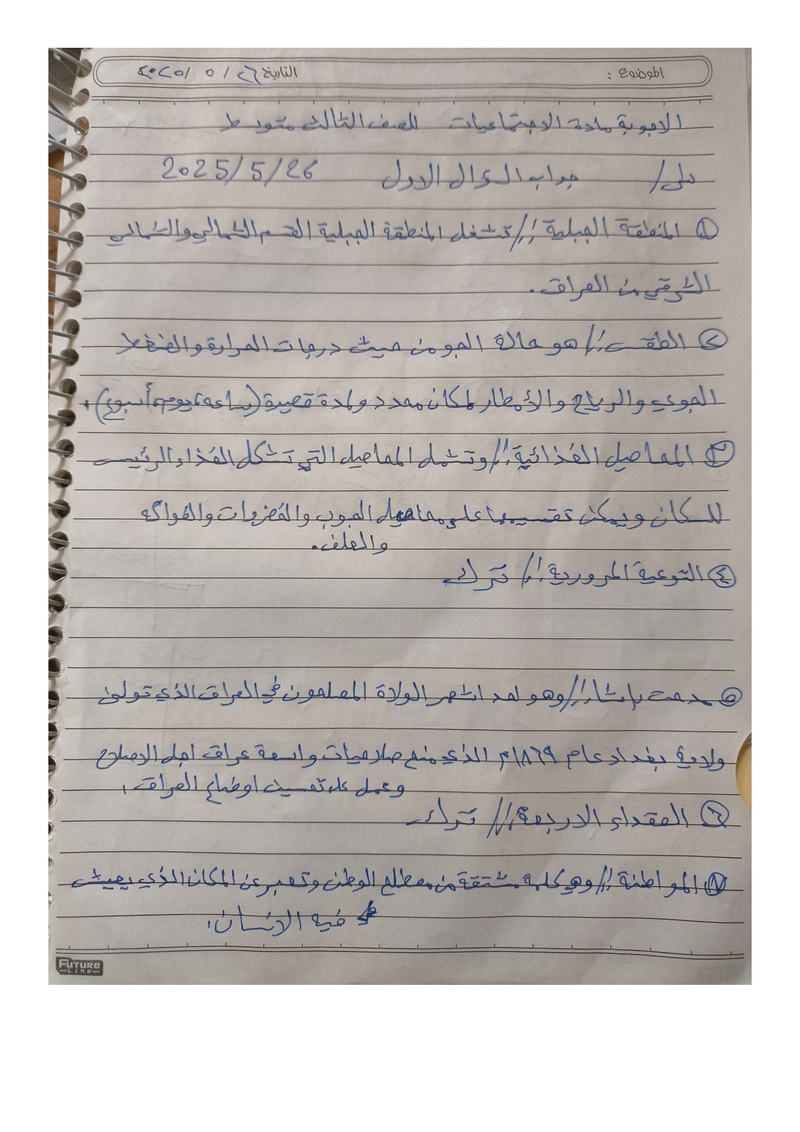 الموضوع : التاريخ ٢٦ / ٥ / ٢٠٢٥
الاجوبة مادة الاجتماعيات للصف الثالث متوسط
جواب السؤال الاول 2025/5/26
١ المنطقة الجبلية // تشغل المنطقة الجبلية القسم الشمالي والشمالي
الشرقي من العراق .
٢ الطقس // هو حالة الجو من حيث درجات الحرارة والضغط
الجوي والرياح والأمطار لمكان محدد ولمدة قصيرة (ساعة، يوم، أسبوع) .
٣ المحاصيل الغذائية // وتشمل المحاصيل التي تشكل الغذاء الرئيسي
للسكان ويمكن تقسيمها على محاصيل الحبوب والخضروات والفواكه
والعلف.
٤ التوعية المرورية // ترك
٥ مدحت باشا // وهو احد اشهر الولاة المصلحون في العراق الذي تولى
ولاية بغداد عام ١٨٦٩م الذي منح صلاحيات واسعة عراق اجل الاصلاح
وعمل على تحسين اوضاع العراق .
٦ العقداء الاربعة // ترك
٧ المواطنة // وهي كلمة مشتقة من مصطلح الوطن وتعبر عن المكان الذي يعيش
فيه الانسان.
FUTURE
LINE